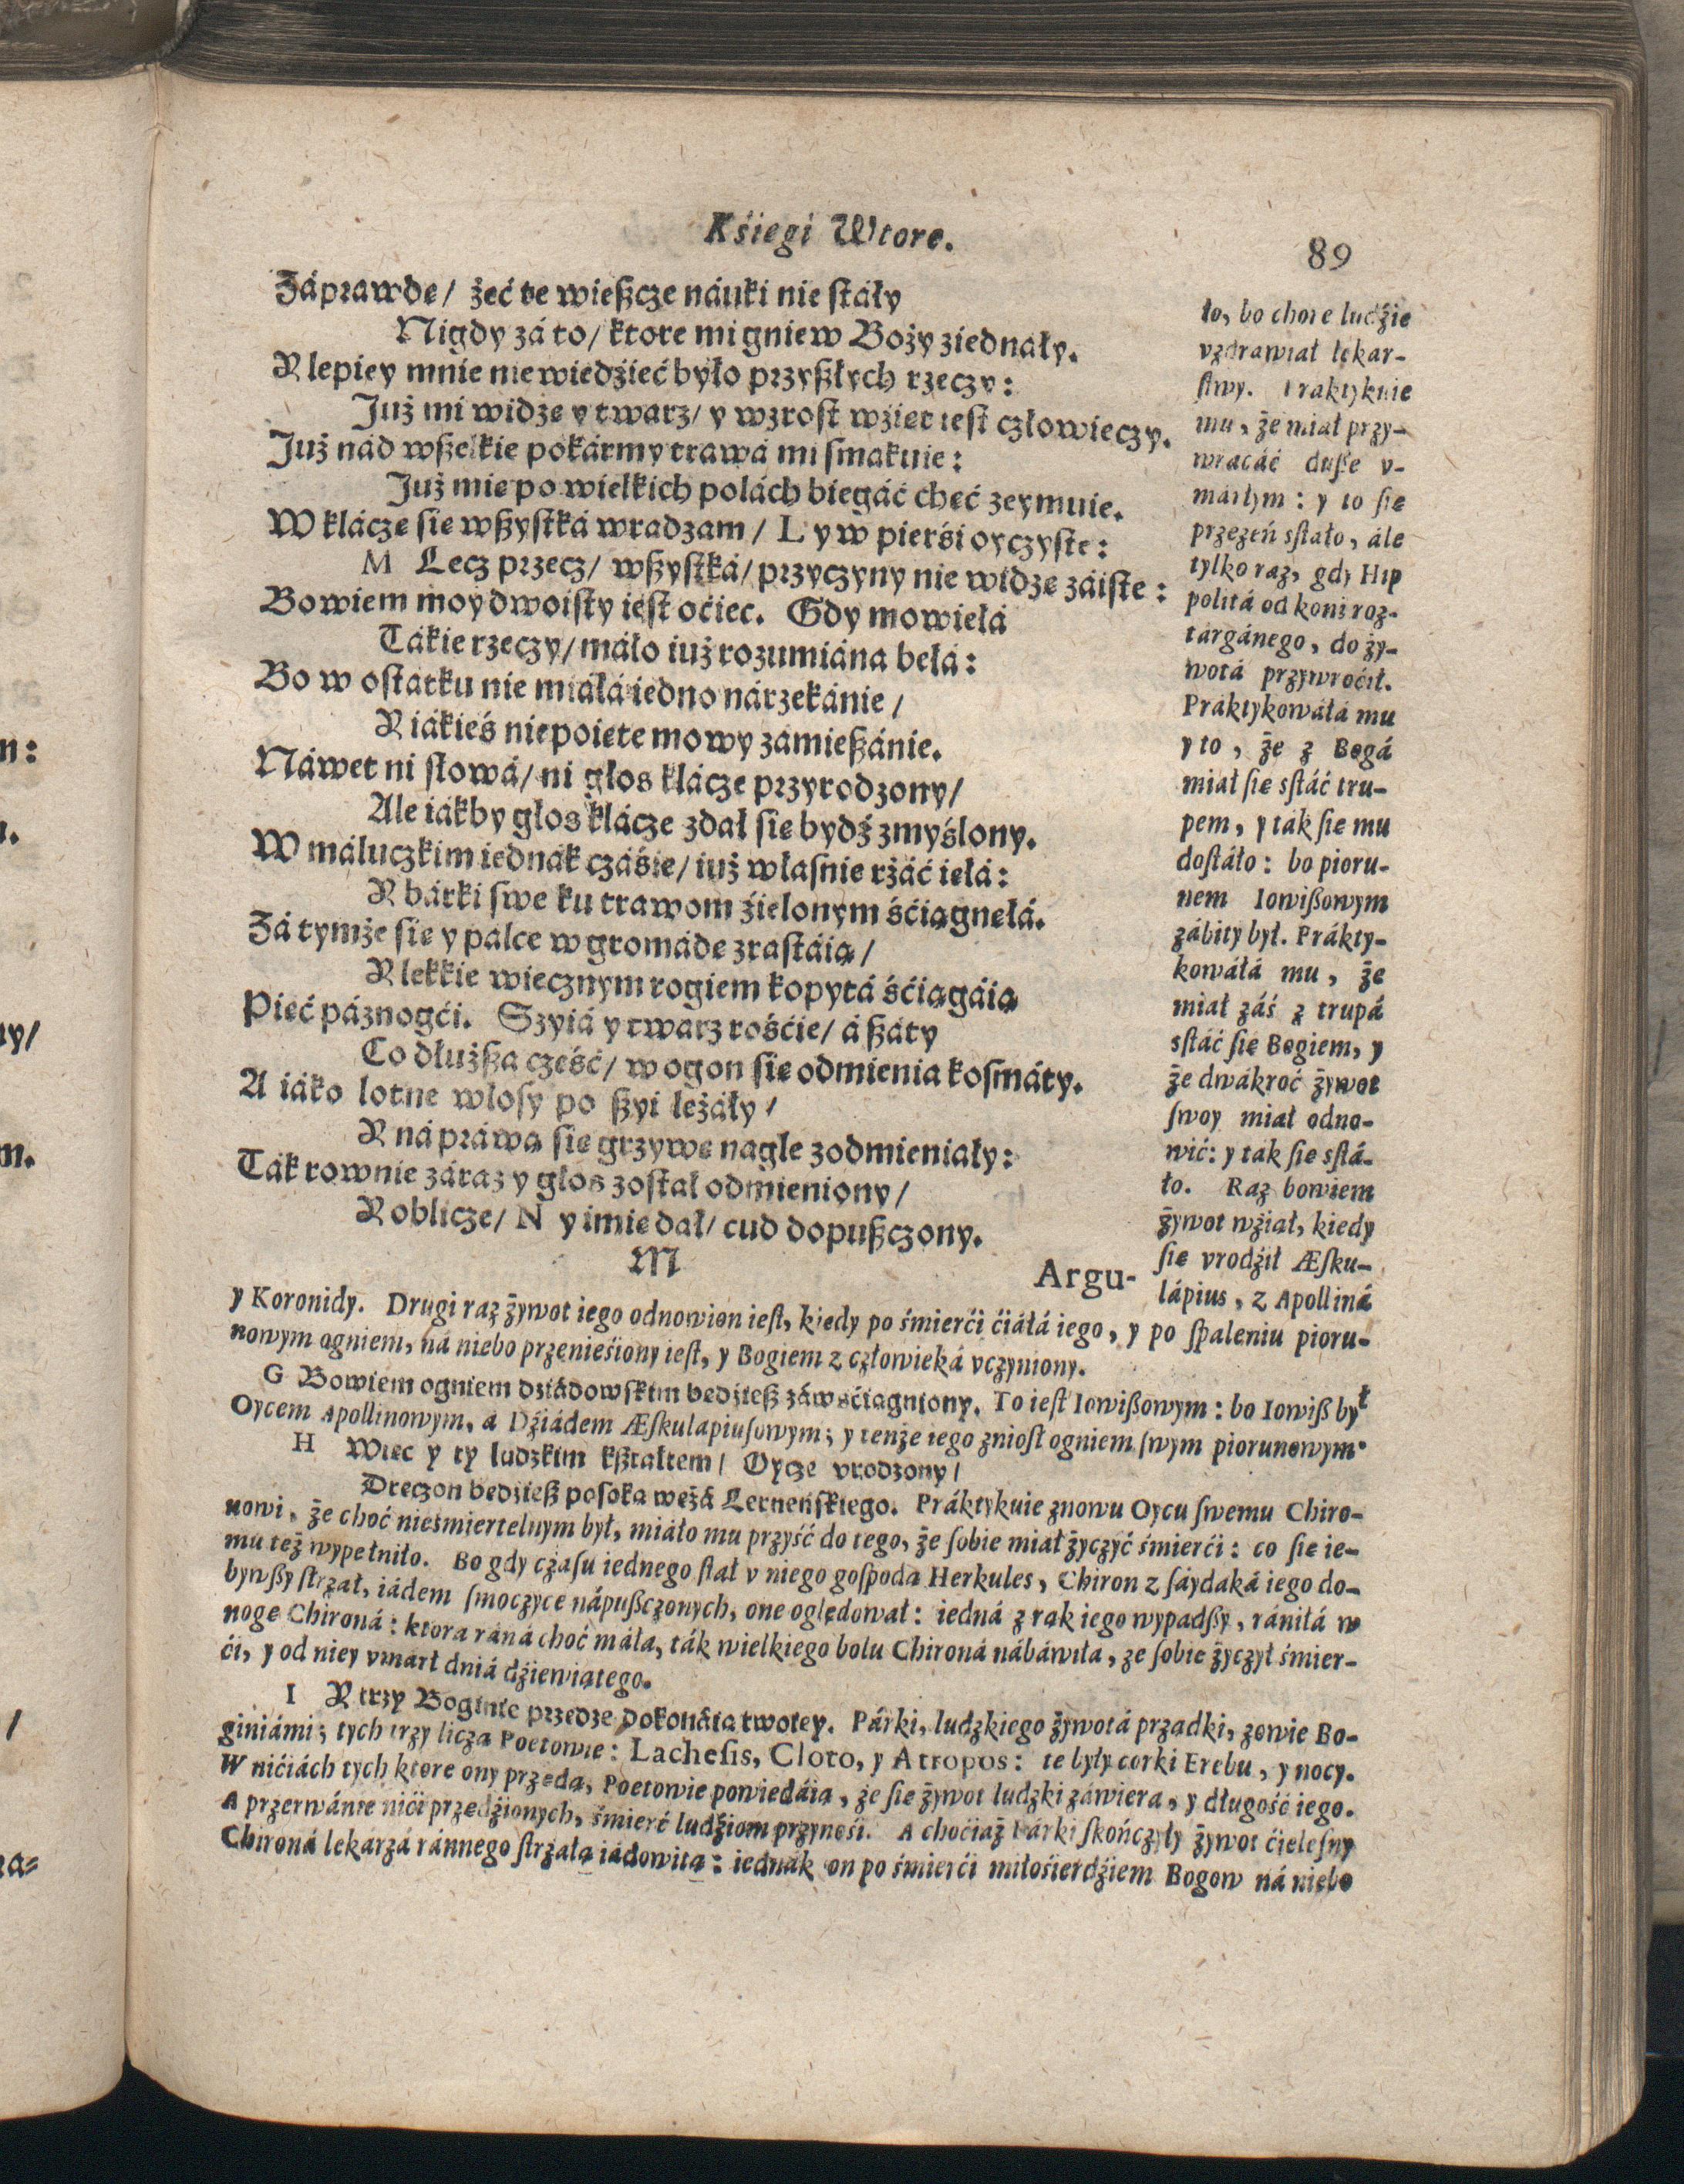 Kśiegi Wtore.
89
Záprawde/ żeć te wieſzcze náuki nie ſtáły
Nigdy zá to/ ktore mi gniew Boży ziednáły.
Y lepiey mnie nie wiedźieć było przyſzłych rzeczy:
Już mi widze y twarz/ y wzroſt wźiet ieſt człowieczy.
Już nád wſzelkie pokármy trawá mi ſmakuie:
Już mie po wielkich polách biegáć cheć zeymuie.
W klácze ſie wſzyſtká wradzam/ L y w pierśi oyczyſte:
M Lecz przecz/ wſzyſtká/ przyczyny nie widze záiſte:
Bowiem moy dwoiſty ieſt oćiec. Gdy mowiełá
Tákie rzeczy/ máło iuż rozumiána bełá:
Bo w oſtatku nie miáłá iedno nárzekánie/
Y iákieś niepoiete mowy zámieſzánie.
Náwet ni ſłowá/ ni głos klácze przyrodzony/
Ale iákby głos klácze zdał ſie bydź zmyślony.
W máluczkim iednák czáśie/ iuż właſnie rżáć iełá:
Y bárki ſwe ku trawom źielonym śćiągnełá.
Zá tymże ſie y palce w gromáde zraſtáią/
Y lekkie wiecznym rogiem kopytá śćiągáią
Pieć páznogći. Szyiá y twarz rośćie/ á ſzáty
Co dłużſza cześć/ w ogon ſie odmienia koſmáty.
A iáko lotne włoſy po ſzyi leżáły/
Y ná práwą ſie grzywe nagle zodmieniały:
Ták rownie záraz y głos został odmieniony/
Y oblicze/ N y imie dał/ cud dopuſzczony.
M
Argu-
ło, bo chore ludźie
vzdrawiał lekar-
ſtwy. Praktykuie
mu, że miał przy-
wracáć duſze v-
márłym: y to ſie
przezeń sſtało, ále
tylko raz, gdy Hip
politá od koni roz-
tárgánego, do ży-
wotá przywroćił.
Práktykowáłá mu
y to, że z Bogá
miał ſie sſtáć tru-
pem, y ták ſie mu
doſtáło: bo pioru-
nem Iowiſzowym
zábity był. Prákty-
kowáłá mu, że
miał záś z trupá
sſtáć ſie Bogiem, y
że dwákroć żywot
ſwoy miał odno-
wić: y tak ſie sſtá-
ło. Raz bowiem
żywot wźiał, kiedy
ſie vrodźił Æſku-
lápius, z Apolliná
y Koronidy. Drugi raz żywot iego odnowion ieſt, kiedy po śmierći ćiáłá iego, y po ſpaleniu pioru-
nowym ogniem, ná niebo przenieśiony ieſt, y Bogiem z człowieká vczyniony.
G Bowiem ogniem dziádowſkim bedzieſz záwśćiągniony. To ieſt Iowiſzowym: bo Iowiſz był
Oycem Apollinowym, á Dźiádem Æſkulapiuſowym; y tenże iego znioſł ogniem ſwym piorunowym.
H Wiec y ty ludzkim kſztałtem/ Oycze vrodzony/
Dreczon bedzieſz poſoka weżá Lerneńſkiego. Práktykuie znowu Oycu ſwemu Chiro-
nowi, że choć nieśmiertelnym był, miáło mu przyść do tego, że ſobie miał życzyć śmierći: co ſie ie-
mu też wypełniło. Bo gdy czaſu iednego ſtał v niego goſpoda Herkules, Chiron z ſáydaká iego do-
bywſzy ſtrzał, iádem ſmoczyce nápuſzczonych, one oględował: iedná z rąk iego wypadſzy, rániłá w
noge Chironá: ktora ráná choć máła, ták wielkiego bolu Chironá nábáwiła, ze ſobie życzył śmier-
ći, y od niey vmárł dniá dźiewiątego.
I Y trzy Boginie przedze dokonáią twoiey. Párki, ludzkiego żywotá prządki, zowie Bo-
giniámi; tych trzy liczą Poetowie: Lacheſis, Cloto, y Atropos: te były corki Erebu, y nocy.
W nićiách tych ktore ony przedą, Poetowie powiedáią, że ſie żywot ludzki záwiera, y długość iego.
A przerwánie nići przedźionych, śmierć ludźiom przynośi. A choćiaż Párki ſkończyły żywot ćieleſny
Chironá lekárzá ránnego ſtrzałą iádowitą: iednák on po śmierći miłośierdźiem Bogow ná niebo